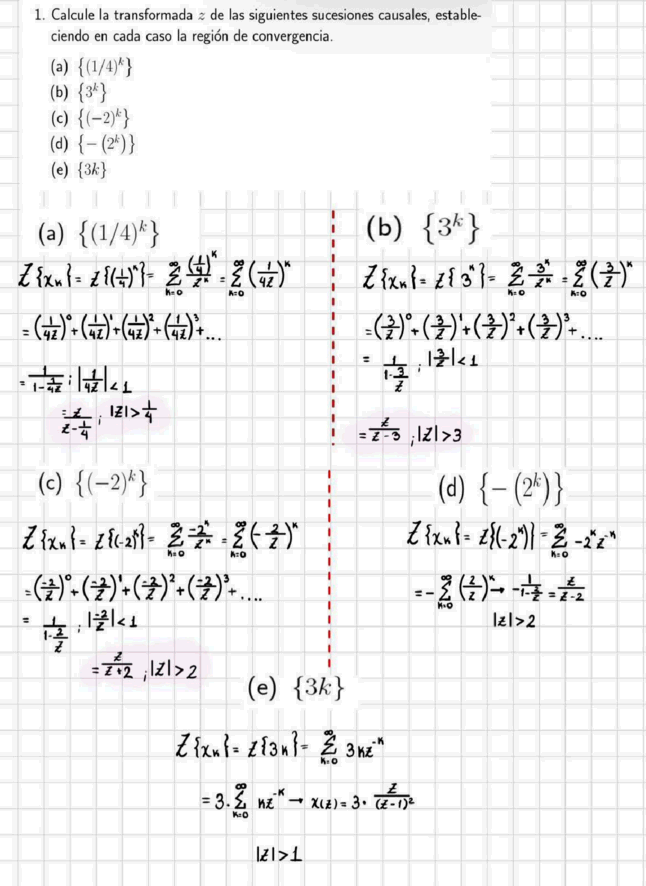 1. Calcule la transformada z de las siguientes sucesiones causales, estable-
ciendo en cada caso la región de convergencia.
(a) {(1/4)^k}
(b) {3^k}
(c) {(−2)^k}
(d) {−(2^k)}
(e) {3k}
(a) {(1/4)^k}
Z{x_k} = Z{(1/4)^k} = Σ_{k=0}^∞ (1/4)^k/z^k = Σ_{k=0}^∞ (1/4z)^k
= (1/4z)^0 + (1/4z)^1 + (1/4z)^2 + (1/4z)^3 + ...
= 1/(1 − 1/4z) ; |1/4z| < 1
= z/(z − 1/4) ; |z| > 1/4
(b) {3^k}
Z{x_k} = Z{3^k} = Σ_{k=0}^∞ 3^k/z^k = Σ_{k=0}^∞ (3/z)^k
= (3/z)^0 + (3/z)^1 + (3/z)^2 + (3/z)^3 + ....
= 1/(1 − 3/z) ; |3/z| < 1
= z/(z − 3) ; |z| > 3
(c) {(−2)^k}
Z{x_k} = Z{(−2)^k} = Σ_{k=0}^∞ −2^k/z^k = Σ_{k=0}^∞ (−2/z)^k
= (−2/z)^0 + (−2/z)^1 + (−2/z)^2 + (−2/z)^3 + ....
= 1/(1 − 2/z) ; |−2/z| < 1
= z/(z + 2) ; |z| > 2
(d) {−(2^k)}
Z{x_k} = Z{(−2^k)} = Σ_{k=0}^∞ −2^k z^−k
= − Σ_{k=0}^∞ (2/z)^k → − 1/(1 − 2/z) = z/(z − 2)
|z| > 2
(e) {3k}
Z{x_k} = Z{3k} = Σ_{k=0}^∞ 3kz^−k
= 3 · Σ_{k=0}^∞ kz^−k → x(z) = 3 · z/(z − 1)^2
|z| > 1